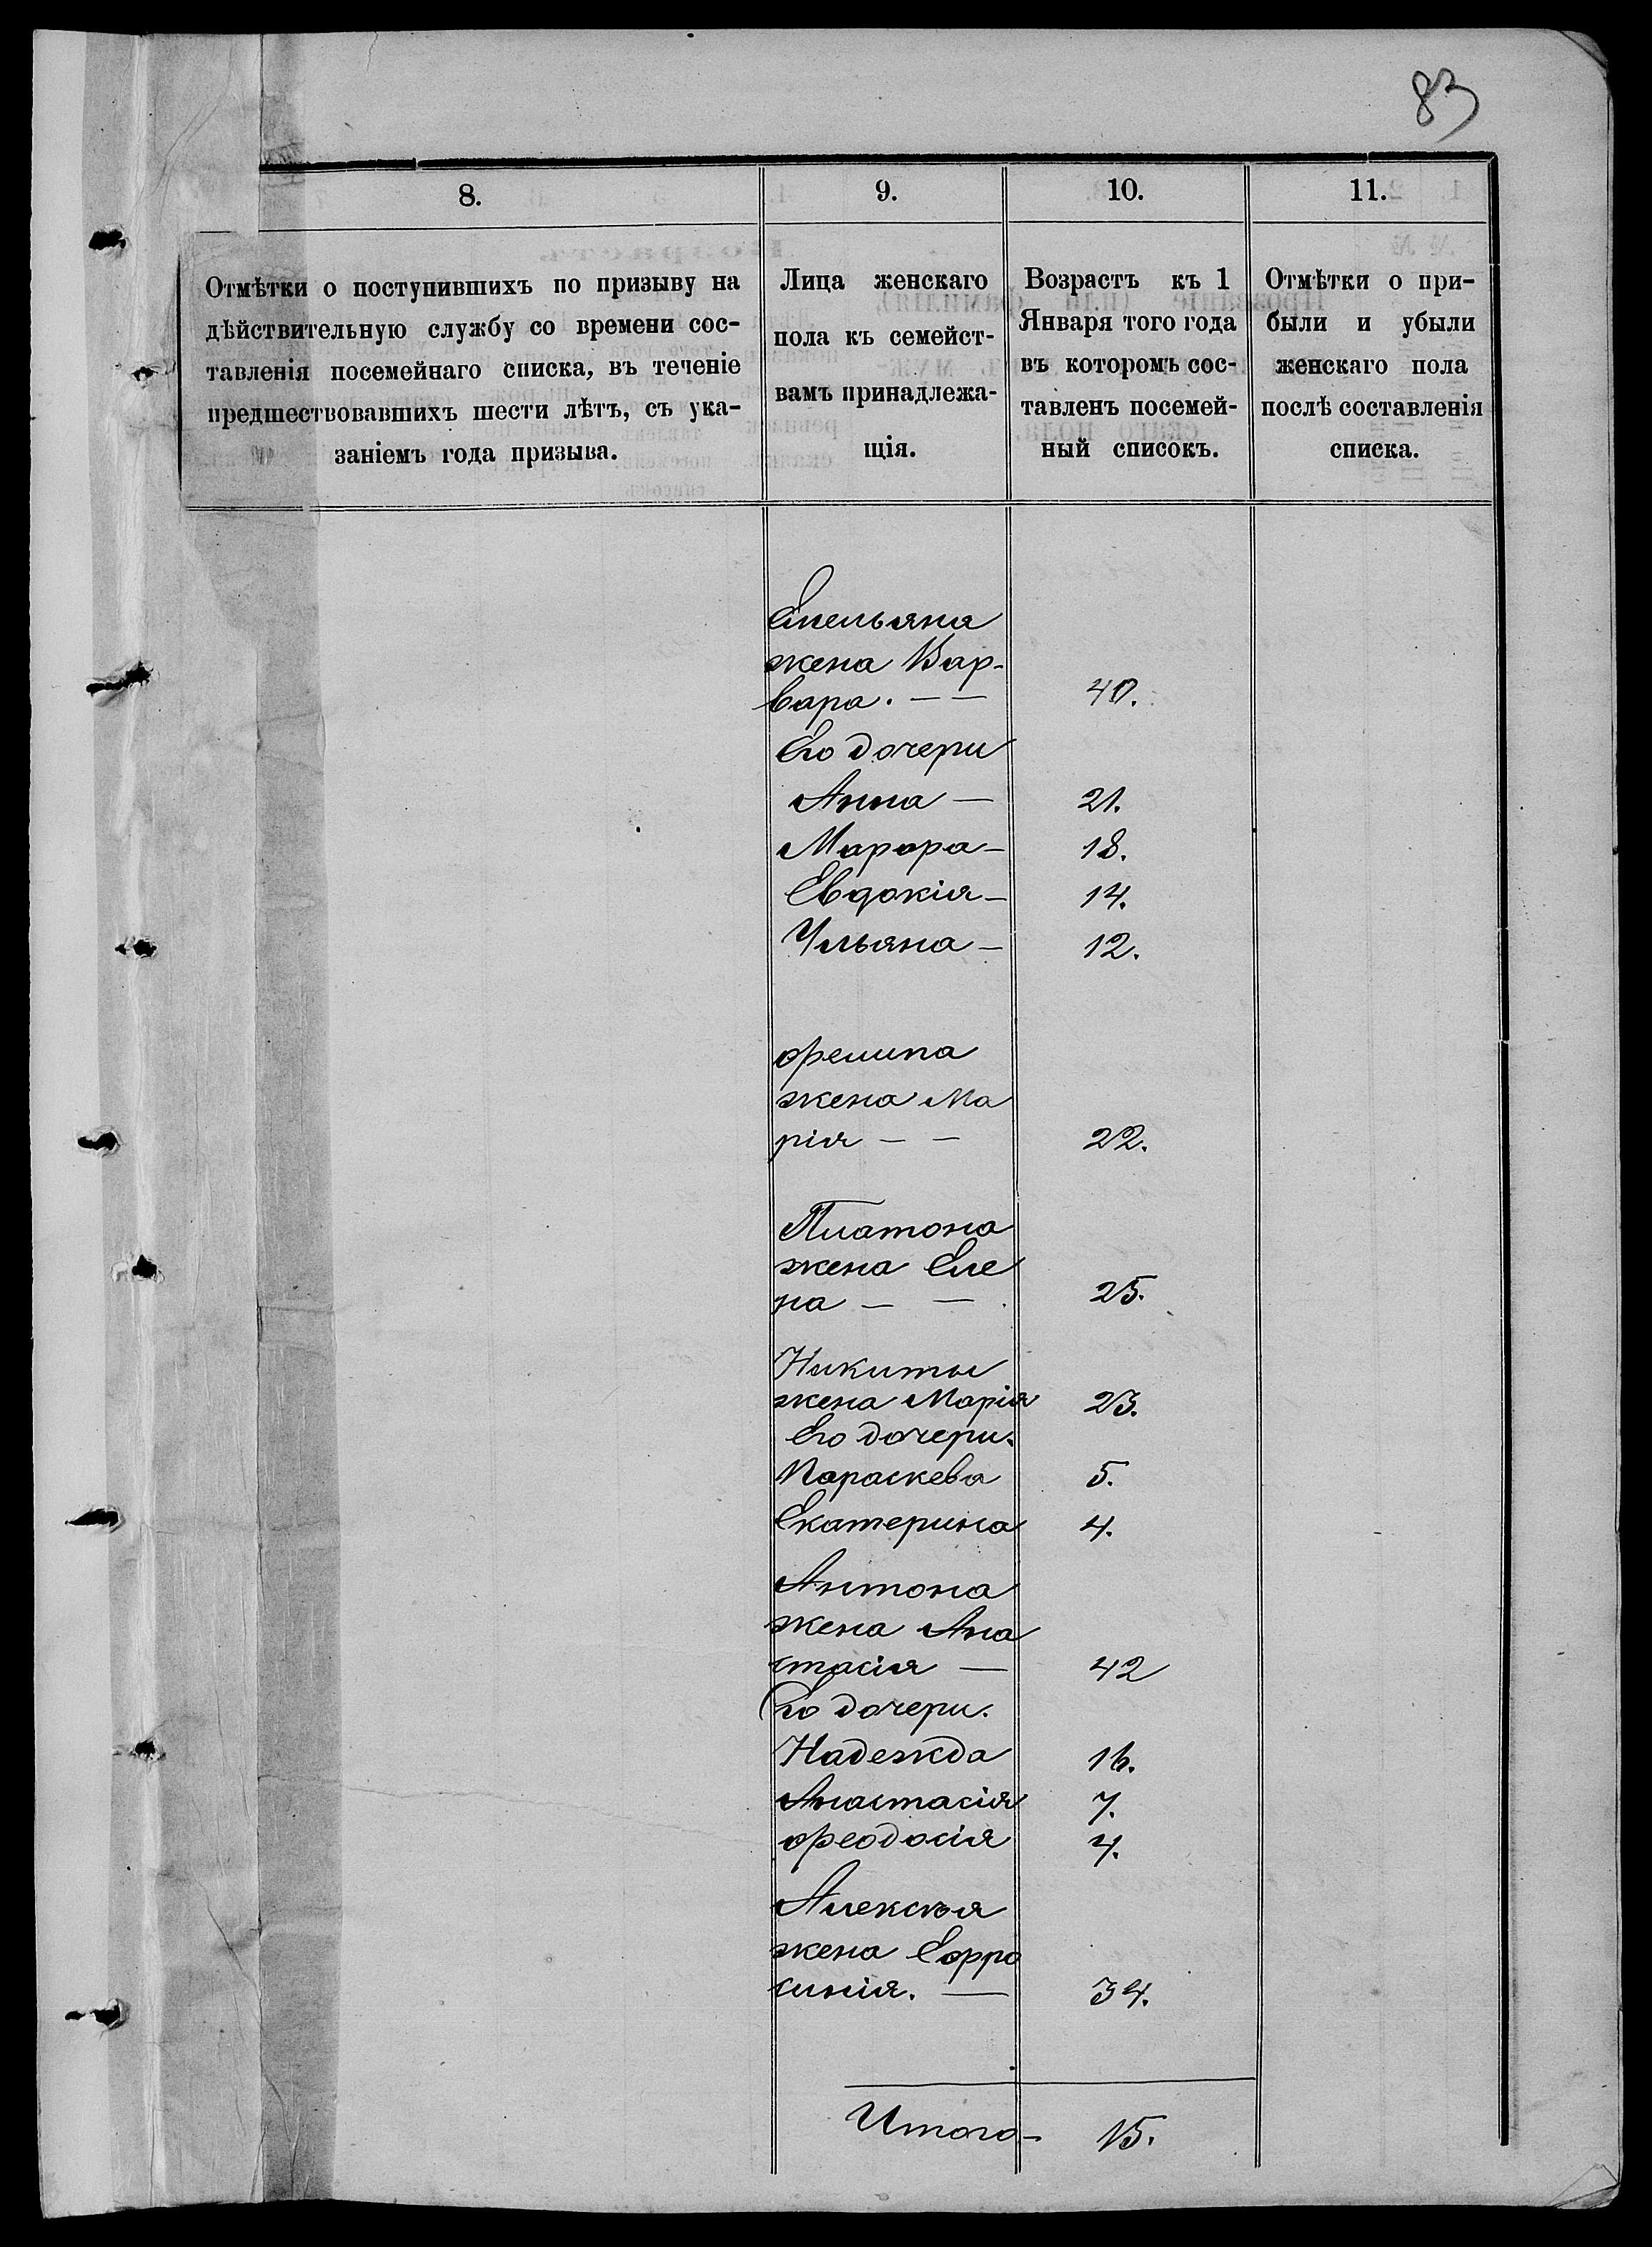 83
8. 9. 10. 11.
Отмѣтки о поступившихъ по призыву на
дѣйствительную службу со времени сос-
тавленія посемейнаго списка, въ теченіе
предшествовавшихъ шести лѣтъ, съ ука-
заніемъ года призыва.
Лица женскаго
пола къ семейст-
вамъ принадлежа-
щія.
Возрастъ къ 1
Января того года
въ которомъ сос-
тавленъ посемей-
ный списокъ.
Отмѣтки о при-
были и убыли
женскаго пола
послѣ составленія
списка.
Емельяна
жена Вар-
вара. — — 40.
Его дочери
Анна — 21.
Марфа — 18.
Евдокія — 14.
Ульяна — 12.
Филипа
жена Ма
рія — — 22.
Платона
жена Еле
на — — 25.
Никиты
жена Марія 23.
Его дочери.
Параскева 5.
Екатерина 4.
Антона
жена Ана
стасія — 42
Его дочери.
Надежда 16.
Анастасія 7.
Феодосія 4.
Алексѣя
жена Ефро
синія. — 34.
Итого — 15.